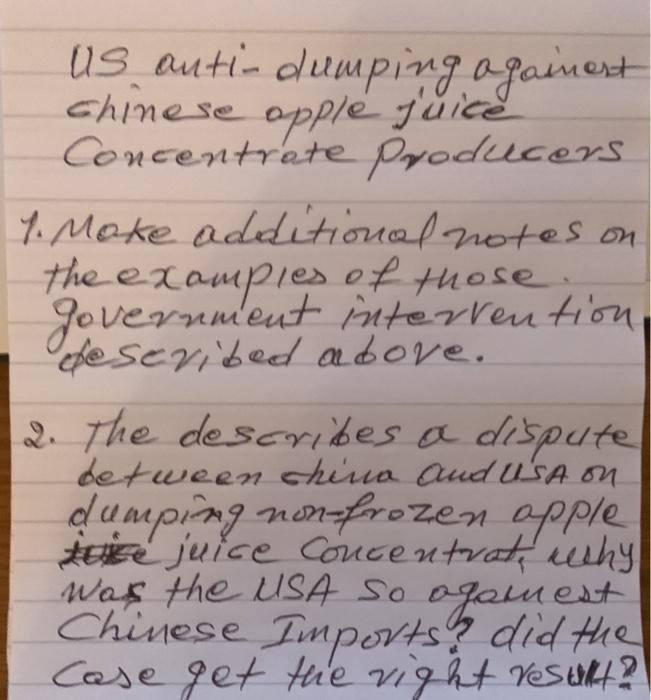 US anti-dumping againest
chinese apple juice
Concentrate Producers
1. Make additional notes on
the examples of those.
government intervention
described above.
2. The describes a dispute
between china and USA on
dumping non-frozen apple
juice Concentrat, why
was the USA so againest
Chinese Imports? did the
Case get the right result?